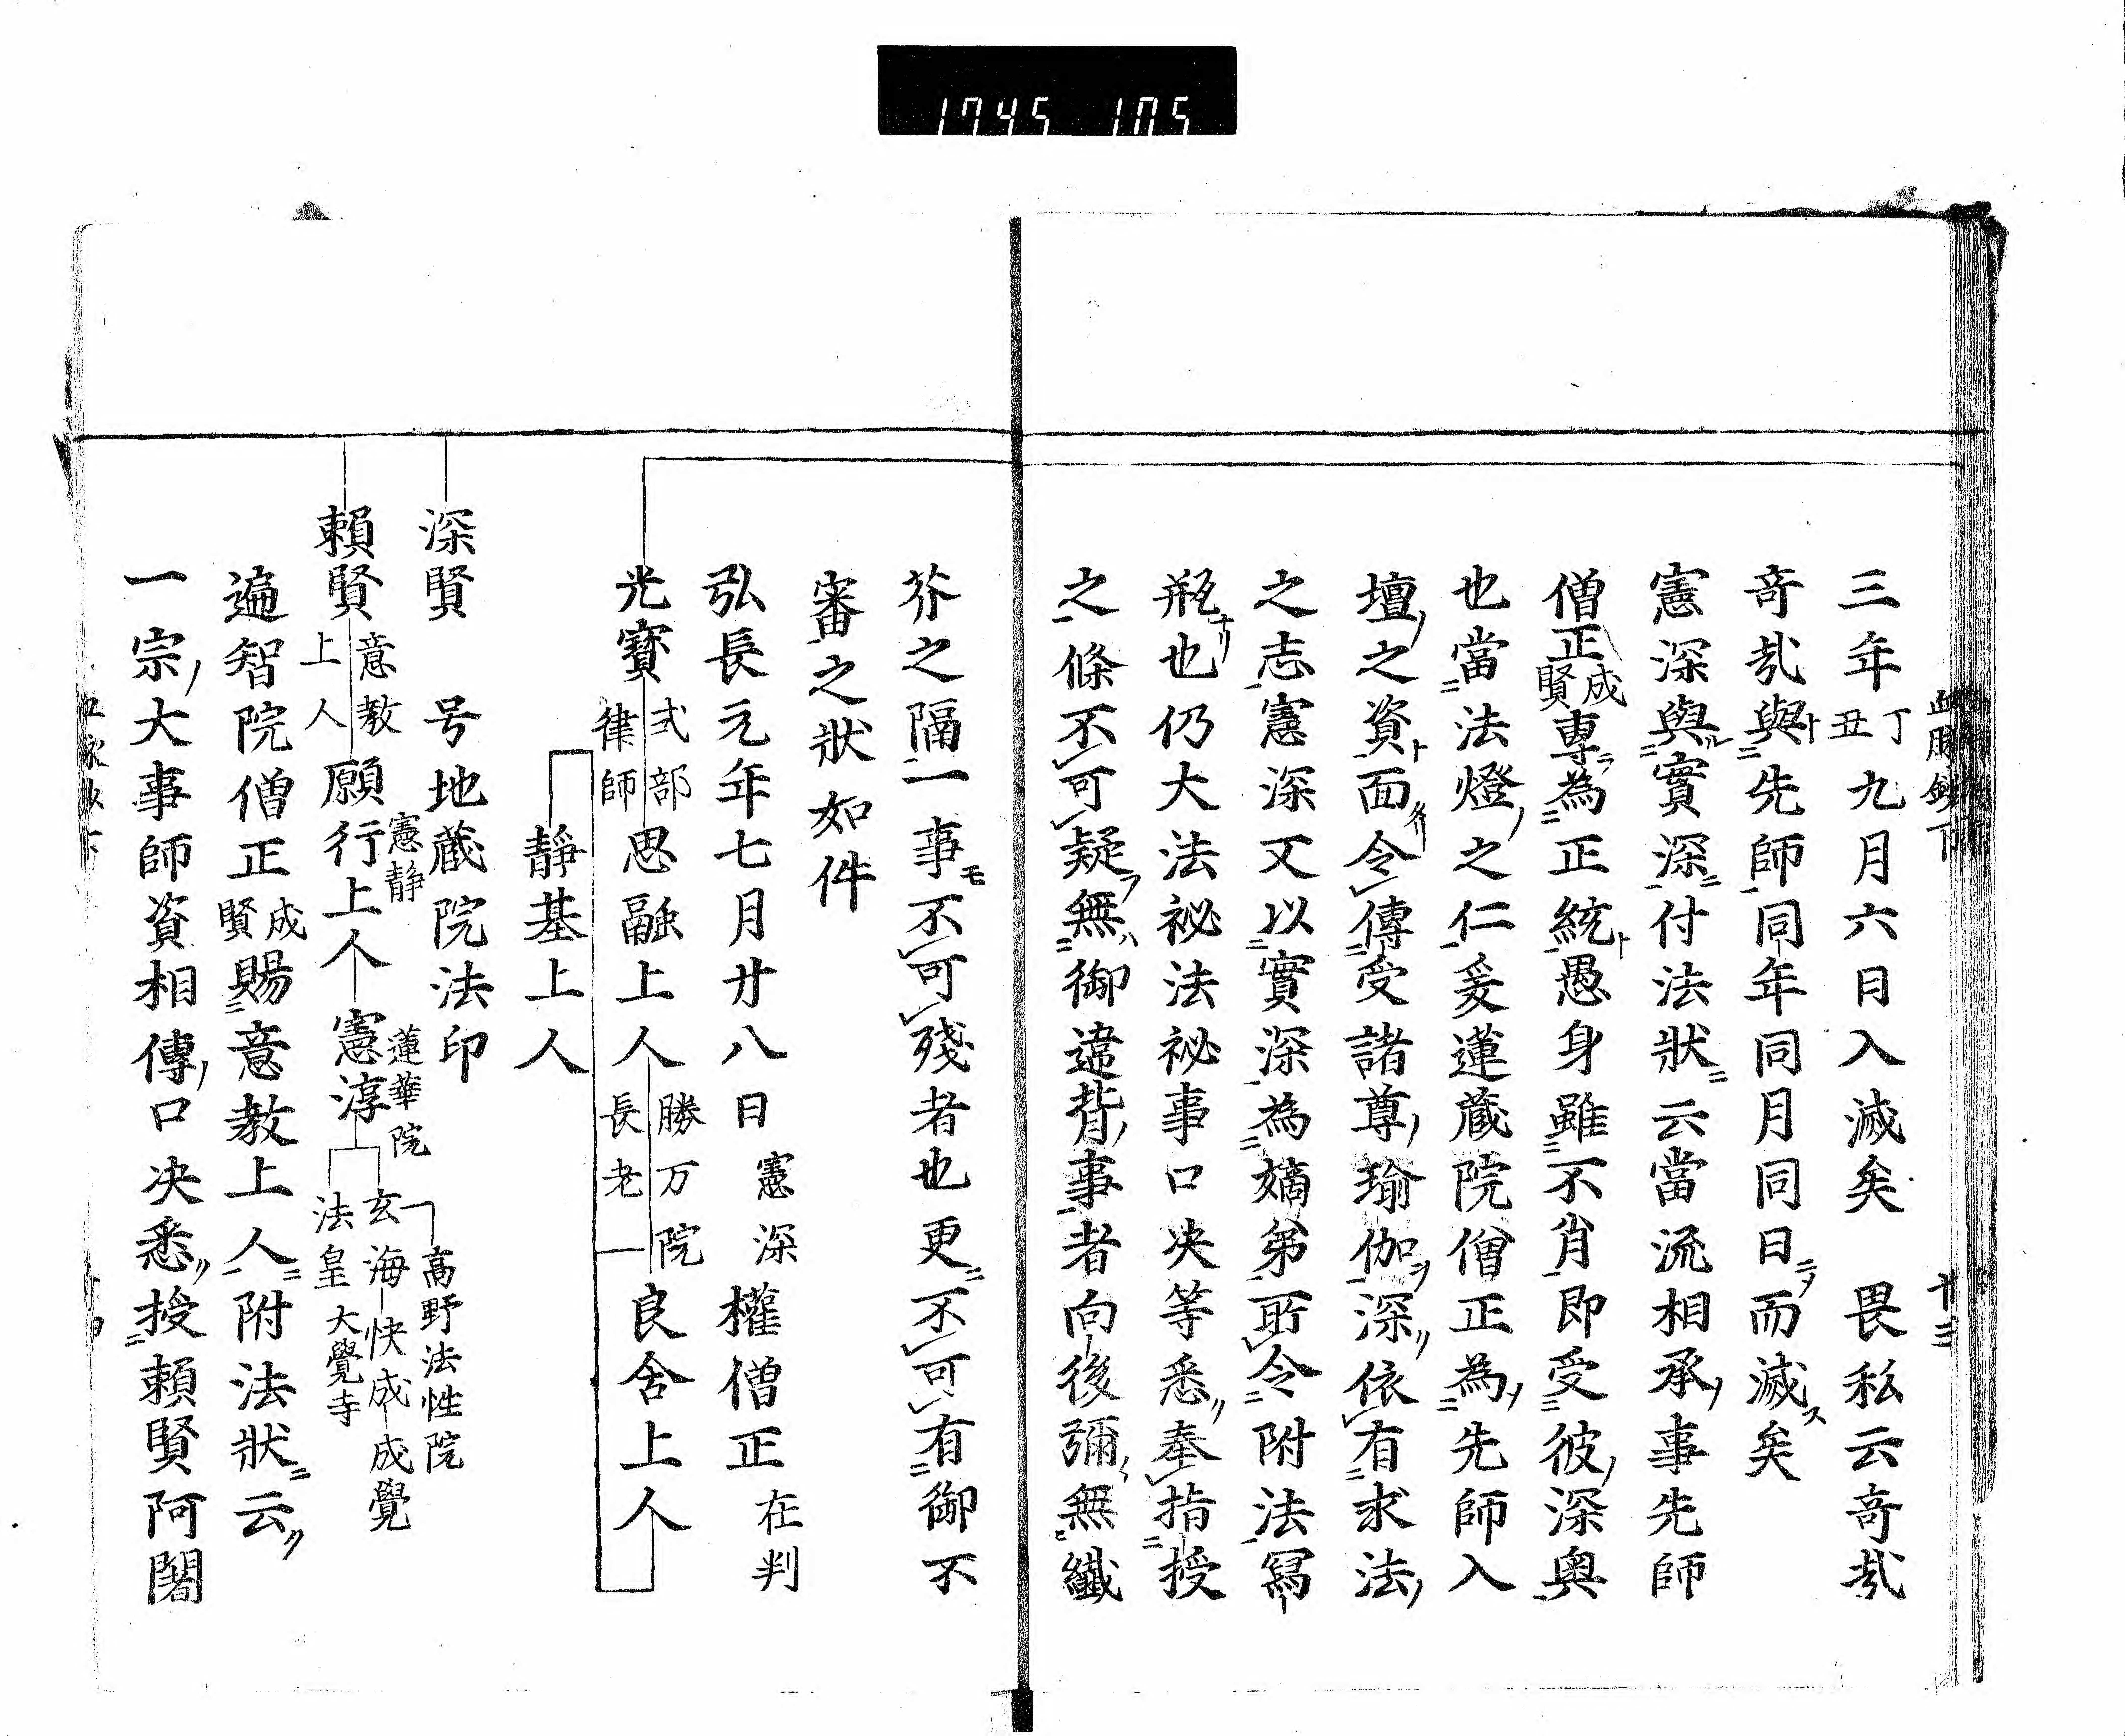 1745 105
血脉鈔下 廿三
三年丁丑九月六日入滅矣 畏私云竒㢤
竒㢤與ト先師同年同月同日ニヲ而滅ス矣
憲深與ル實深ニ付法狀ニ云當流相承ノ事先師
僧正成賢専ラ為正統ト愚身雖不肖即受彼ノ深奥
也當法燈ノ之仁爰蓮蔵院僧正為ノ先師入
壇ノ之資ト面タリ令傳受諸尊ノ瑜伽ヲ深〃依有求法ノ
之志憲深又以實深為嫡弟所令附法冩
瓶ナリ也仍大法祕法祕事口决等悉〃奉指授
之條不可疑フ無ハ御違背ノ事者向後彌〻無纎
芥之隔一事モ不可殘者也更ニ不可有御不
審之狀如件
弘長元年七月廿八日 憲深權僧正在判
光寶式部律師 思融上人勝万院長老 良含上人
靜基上人
深賢 号地蔵院法印
賴賢意教上人 願行上人憲静 憲淳蓮華院 玄海 快成 成覺
高野法性院
法皇大覺寺
遍智院僧正成賢賜意教上人ニ附法狀ニ云〃
一宗ノ大事師資相傳ノ口决悉〃授賴賢阿闍